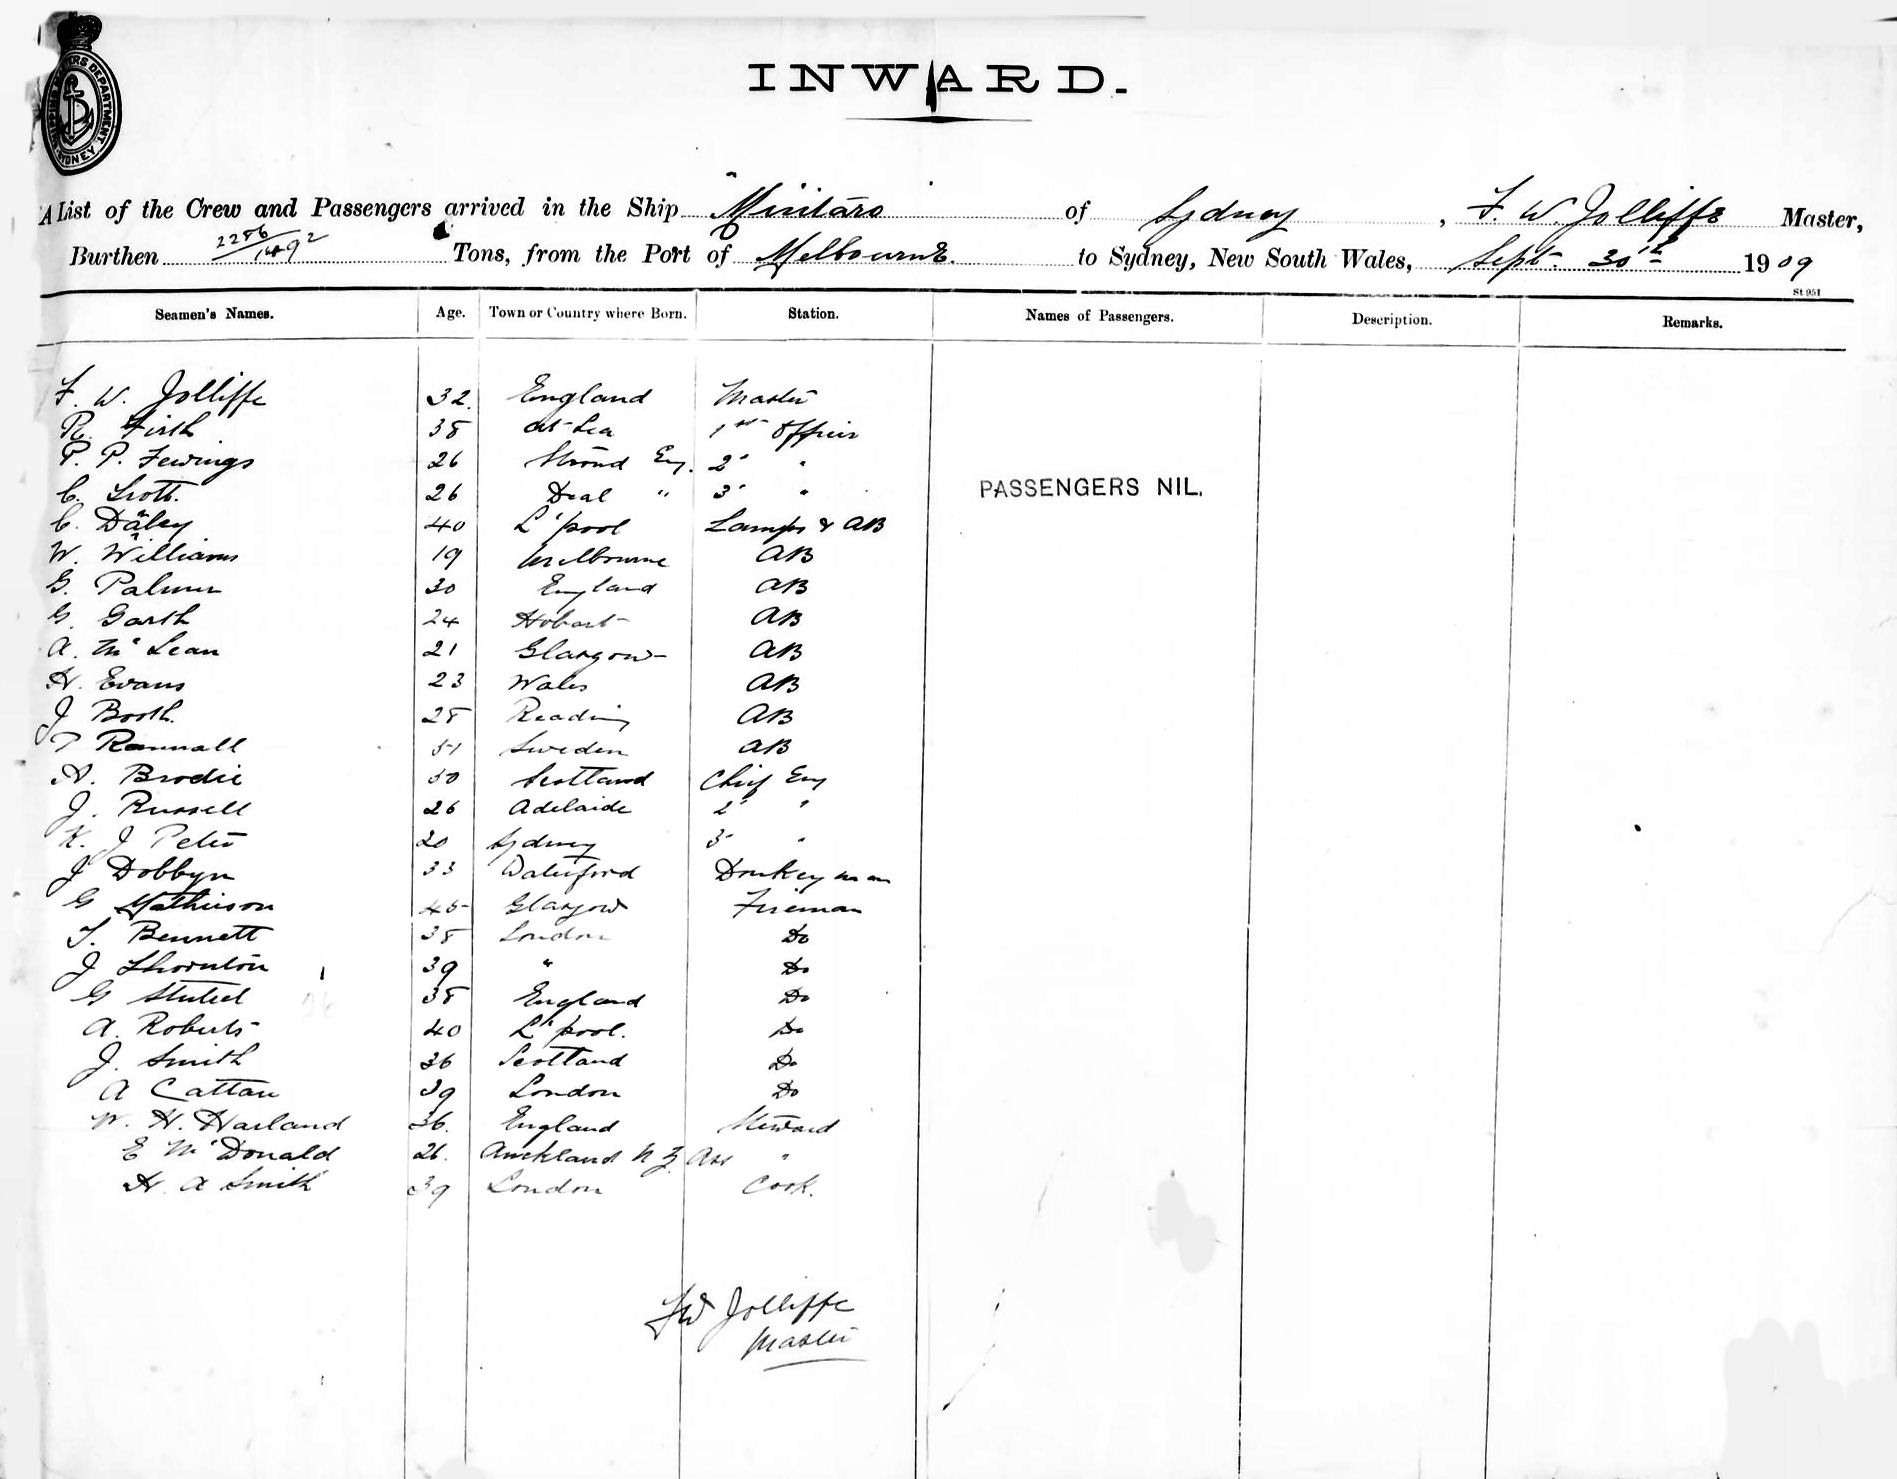 INWARD.
SHIPPING MASTERS DEPARTMENT. SYDNEY
A List of the Crew and Passengers arrived in the Ship of Sydney, F. W. Jolliffe Master,
Burthen 2286/1492 Tons, from the Port of Melbourne. to Sydney, New South Wales, Sept. 30th 1909
St 951
Seamen's Names. Age. Town or Country where Born. Station. Names of Passengers. Description. Remarks.
F. W. Jolliffe 32. England Master
R. Firth 38 at Sea 1st Officer
P. P. Fewings 26 Stroud Eng. 2" "
C. Trott. 26 Deal " 3" "
C. Daley 40 L'pool Lamps & AB
PASSENGERS NIL.
W. Williams 19 Melbourne AB
G. Palmer 30 England AB
G. Garth 24 Hobart AB
A. McLean 21 Glasgow AB
H. Evans 23 Wales AB
J Booth. 28 Reading AB
51 Sweden AB
A. Brodie 50 Scotland Chief Eng
J. Russell 26 Adelaide 2" "
K. J Peter 20 Sydney 3" "
J Dobbyn 33 Waterford Donkeyman
G Mathieson 45 Glasgow Fireman
T. Bennett 38 London Do
J Thornton 39 " Do
G 38 England Do
A. Roberts 40 L'pool. Do
J. Smith 36 Scotland Do
A Cattau 39 London Do
W. H. Harland 36. England Steward
E McDonald 26. Auckland N Z Ass "
H. A Smith 39 London Cook.
FW Jolliffe
Master